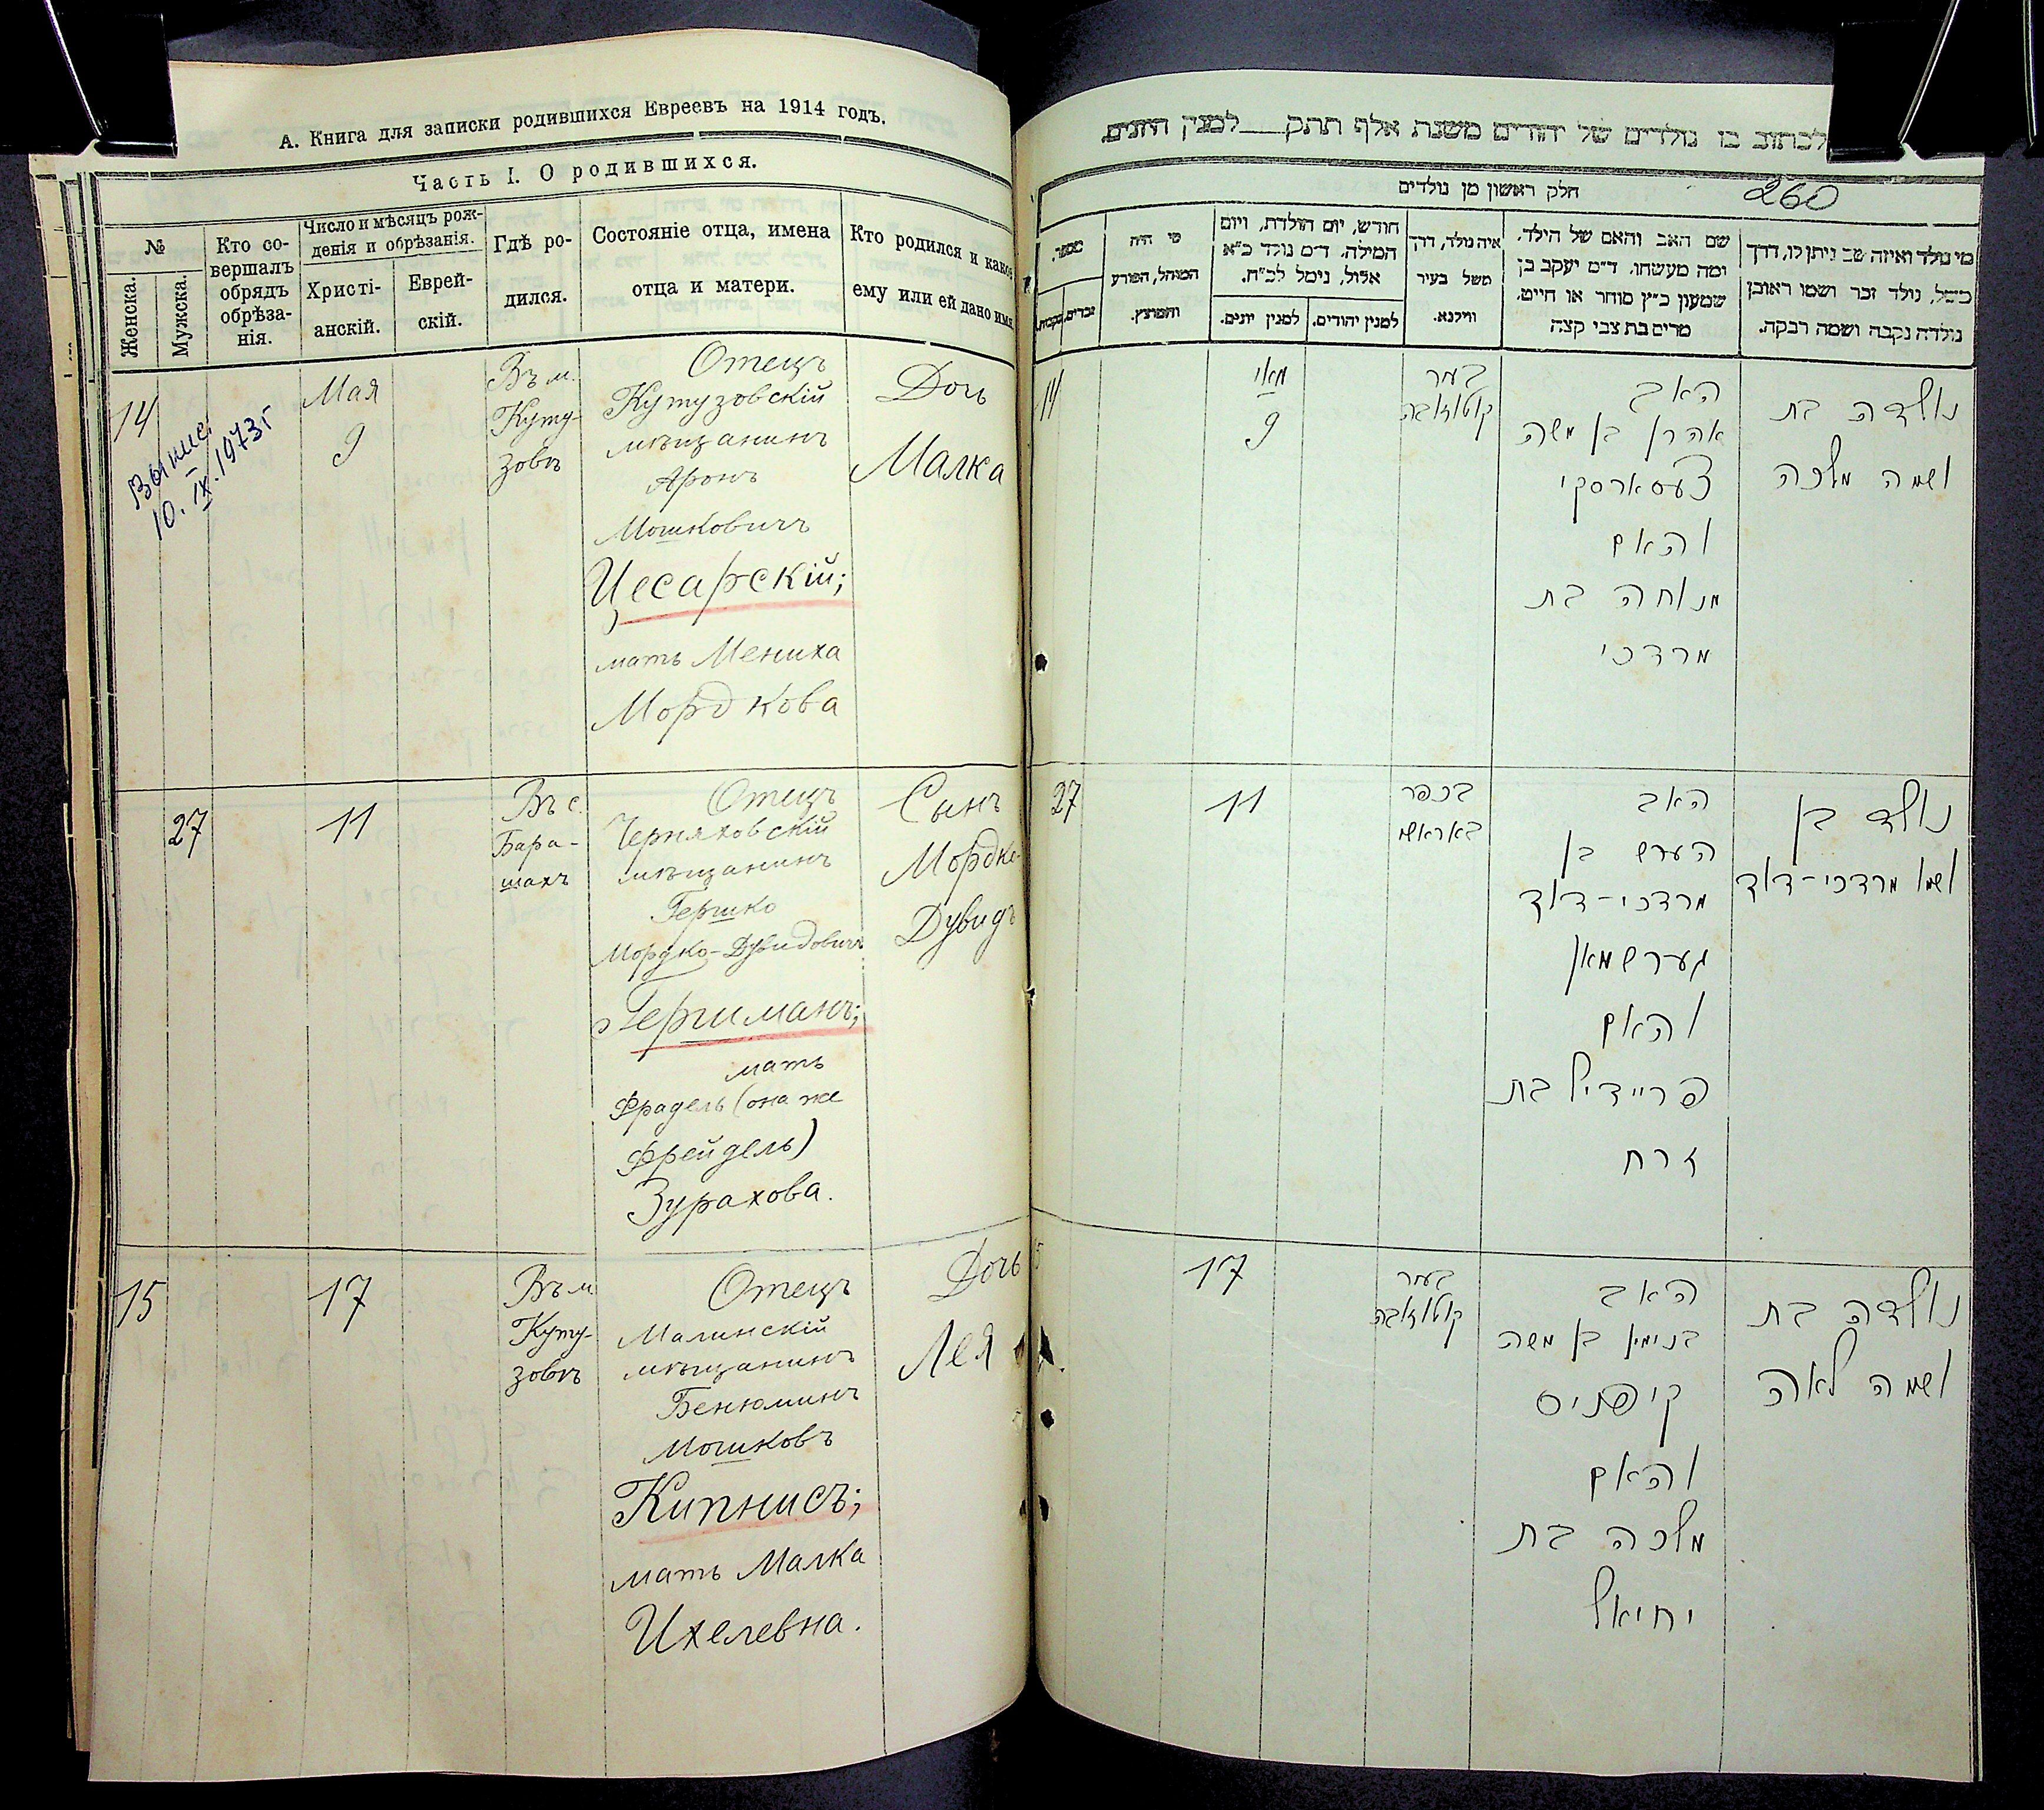 А. Книга для записки родившихся Евреевъ на 1914 годъ.
Часть I. О родившихся.
№
Женска.
Мужска.
Кто со-
вершалъ
обрядъ
обрѣза-
нія.
Число и мѣсяцъ рож-
денія и обрѣзанія.
Христі-
анскій.
Еврей-
скій.
Гдѣ ро-
дился.
Состояніе отца, имена
отца и матери.
Кто родился и какое
ему или ей дано имя
14
10.IX.1973г
Мая
9
Въ м.
Куту-
зовѣ
Отецъ
Кутузовскій
мѣщанинъ
Аронъ
Мошковичъ
Цесарскій;
мать Мениха
Мордкова
Дочь
Малка
27
11
Въ с.
Бара-
шахъ
Отецъ
Черняховскій
мѣщанинъ
Гершко
Мордко-Дувидовичъ
Гершманъ;
мать
Фрадель (она же
Фрейдель)
Зурахова.
Сынъ
Мордко-
Дувидъ
15
17
Въ м
Куту-
зовѣ
Отецъ
Малинскій
мѣщанинъ
Бенюминъ
Мошковъ
Кипнисъ;
мать Малка
Ихелевна.
Дочь
Лея
לכתוב בו נולדים של יהודים משנת אלף תתק למנין היונים.
260
חלק ראשון מן נולדים
מי נולד ואיזה שם ניתן לו, דרך
משל, נולד זכר ושמו ראובן
נולדה נקבה ושמה רבקה.
שם האב והאם של הילד,
ומה מעשהו. ד"מ יעקב בן
שמעון כ"ץ סוחר או חייט,
מרים בת צבי קצה
איה נולד, דרך
משל בעיר
ווילנא.
חודש, יום הולדת, ויום
המילה. ד"מ נולד כ"א
אלול, נימל לכ"ח.
למנין יהודים.
למנין יונים.
מי היה
המוהל, הפורע
והמוצץ.
מספר.
זכרים.
נקבות.
נולדה בת
ושמה מלכה
האב
אהרן בן משה
צעסארסקי
והאם
מנוחה בת
מרדכי
בעיר
קוטוזאבה
מאי
9
14
נולד בן
ושמו מרדכי-דוד
האב
הערש בן
מרדכי-דוד
גערשמאן
והאם
פריידיל בת
זרח
בכפר
באראש
11
27
נולדה בת
ושמה לאה
האב
בנימין בן משה
קיפניס
והאם
מלכה בת
יחיאל
בעיר
קוטוזאבה
17
5